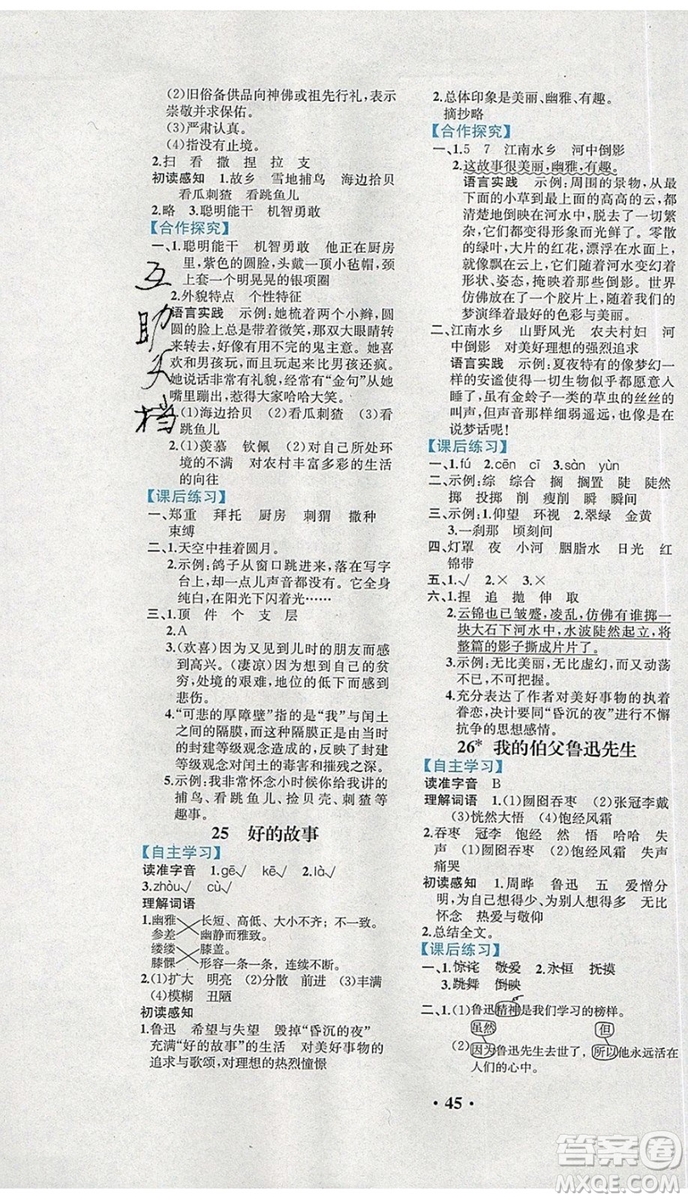 (2)旧俗备供品向神佛或祖先行礼,表示
崇敬并求保佑。
(3)严肃认真。
(4)指没有止境。
2.扫 看 撒 捏 拉 支
初读感知 1.故乡 雪地捕鸟 海边拾贝
看瓜刺猹 看跳鱼儿
2.略 3.聪明能干 机智勇敢
【合作探究】
一、1.聪明能干 机智勇敢 他正在厨房
里,紫色的圆脸,头戴一顶小毡帽,颈
上套一个明晃晃的银项圈
2.外貌特点 个性特征
语言实践 示例:她梳着两个小辫,圆
圆的脸上总是带着微笑,那双大眼睛转来
转去,好像有用不完的鬼主意。她喜
欢和男孩玩,而且玩得比男孩还疯。
她说话非常有礼貌,经常有“金句”从她
嘴里蹦出来,惹得大家哈哈大笑。
二、1.(1)海边拾贝 (2)看瓜刺猹 (3)看
跳鱼儿
2.(1)羡慕 钦佩 (2)对自己所处环
境的不满 对农村丰富多彩的生活
的向往
【课后练习】
一、郑重 拜托 厨房 刺猬 撒种
束缚
二、1.天空中挂着圆月。
2.示例:鸽子从窗口跳进来,落在写字
台上,一点儿声音都没有。它全身
纯白,在阳光下闪着光……
三、1.顶 件 个 支 层
2.A
3.(欢喜)因为见到儿时的朋友而感
到高兴。(凄凉)因为对方生活的贫
穷、处境的艰难、地位的低下而感到
悲伤。
4.“可悲的厚障壁”指的是“我”与闰土
之间的隔膜,而造成这种隔膜的是当
时的封建等级观念,表现了闰土深受
封建等级观念的毒害和摧残之深。
5.示例:我喜欢听小时候闰土给我讲的
捕鸟、看跳鱼儿、捡贝壳、刺猹等
趣事。
25 好的故事
【自主学习】
读准字音 1.gē√ 2.là√
3.zhòu√ cù√
理解词语
1.幽雅 长短、高低、大小不齐;不一致。
参差 幽静而雅致。
缕缕 膝盖。
膝髁 形容一条一条,连续不断。
2.(1)扩大 明亮 (2)分散 (3)丰满
(4)模糊 丑陋
初读感知
1.鲁迅 希望与失望 毁掉“昏沉的夜”
充满“好的故事”的生活 对美好事物的
追求与歌颂,对理想的热烈憧憬
2.总体印象是美丽、幽雅、有趣。
摘抄略
【合作探究】
一、1.5 7 江南水乡 河中倒影
2.这故事很美丽,幽雅,有趣。
语言实践 示例:周围的景物,从最
下面的小草到最上面的高高的云,都
清楚地倒映在河水中,一切是如此
安详,而又如此变化无穷。零散
的绿叶,大片的红花,漂浮在水面上,
就像飘在梦中,随着河水变幻出各种
形状、姿态,掩映着整个世界。世
界仿佛成了一个巨大的梦境,而这
梦演绎着最美的色彩与梦幻。
二、江南水乡 山野风光 农夫村妇 河
中倒影 对美好理想的强烈追求
语言实践 示例:夏夜特有的像梦幻
一样的安谧笼罩了一切,虫儿都不愿意
出声,就好像生怕惊醒了那些沉睡的
生灵。忽然,金铃子一两声丝丝的
叫声,在那里是那样细弱遥远,也好像在
说梦话呢!
【课后练习】
一、1.fú 2.cēn cī 3.sàn yùn
二、示例:综 综合 搁 搁置 陡 陡然
掷 投掷 削 瘦削 瞬 瞬间
三、示例:1.仰望 环视 2.翠绿 金黄
3.一刹那 顷刻间
四、灯罩 夜 小河 胭脂水 日光 红
锦带
五、1.√ 2.× 3.√
六、1.捏 追 抛 伸 取
2.云锦也已皱蹙,凌乱,仿佛有谁掷一
块大石下河水中,水波陡然起立,将
整篇的影子撕成片片了。
3.示例:无比美丽,无比虚幻,而又动荡
不已,不可把握。
4.充分表达了作者对美好事物的执着
眷恋,决计要同“昏沉的夜”进行不懈
抗争的思想感情。
26* 我的伯父鲁迅先生
【自主学习】
读准字音 B
理解词语 1.(1)囫囵吞枣 (2)张冠李戴
(3)恍然大悟 (4)饱经风霜
2.吞枣 冠李 饱经 然大 的的 失声
痛哭 (1)囫囵吞枣 (2)饱经风霜
初读感知 1.周晔 鲁迅 五 爱憎分
明 为自己想得少,为别人想得多 无比
怀念 热爱与敬仰
2.总结全文。
【课后练习】
一、1.惊诧 敬爱 2.永恒 抚摸
3.跳舞 倒映
二、1.(1)鲁迅精神是我们学习的榜样。
虽然 但
(2)因为鲁迅先生去世了,所以他永远活在
人们的心中。
· 45 ·
互助文档
答案圈
MXQE.COM